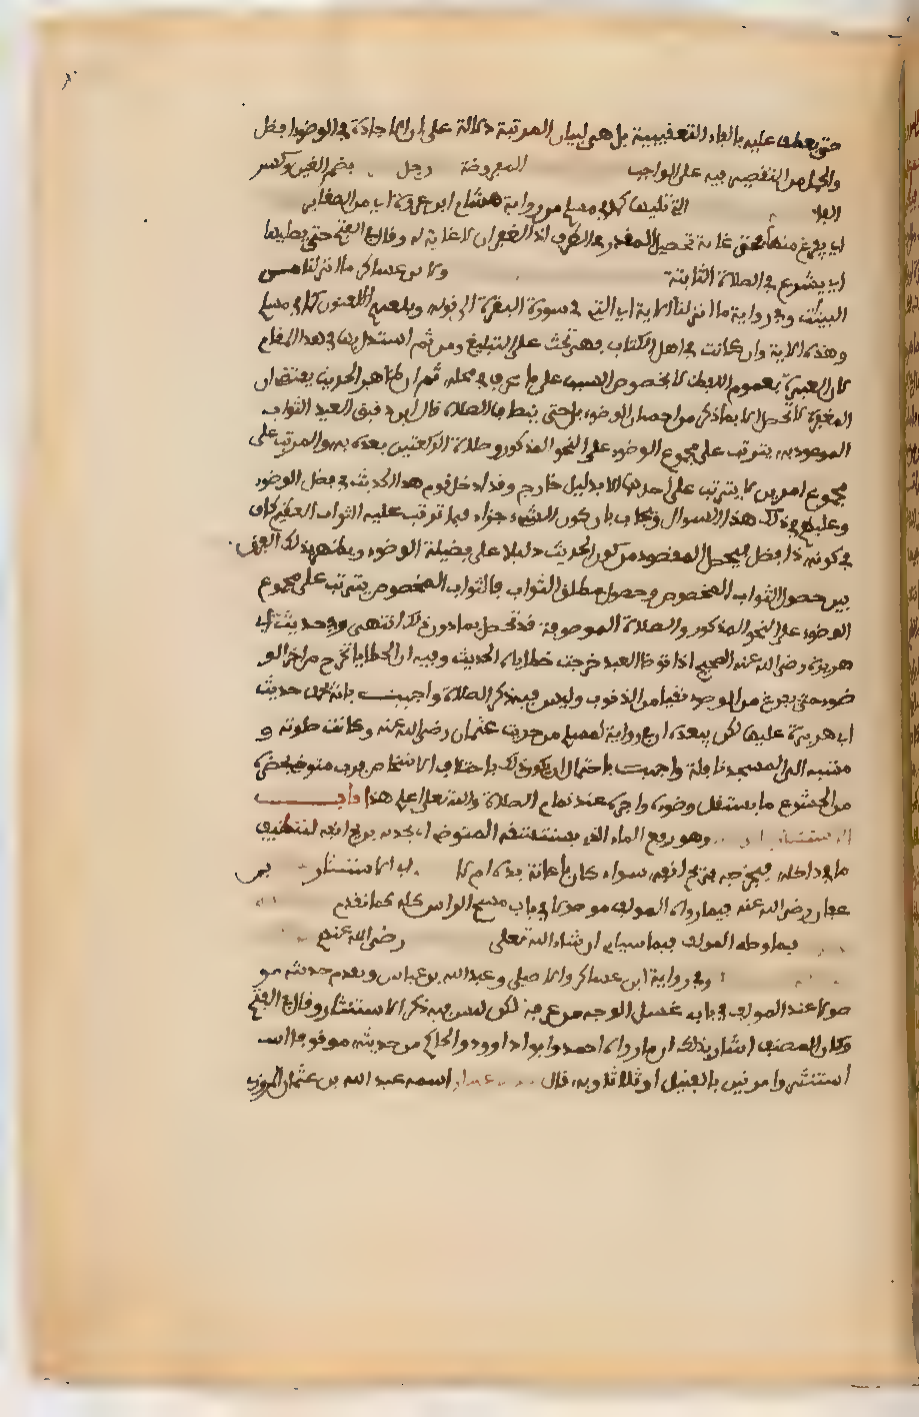 حتى يعطف عليه بالفاء التعقيبية بل هي لبيان المرتبة دلالة على ان الاجادة في الوضوء افضل
واكمل من التقصير فيه على الواجب المفروضة رجل بضم الغين وكسر
الفاء التي تليها كما في مسلم من رواية هشام ابن عروة اي من الصغاير
اي يفرغ منها فحتى غاية تحصل المقدر في الظرف اذ الغفران لا غاية له وقال في الفتح حتى يصليها
اي يشرع في الصلاة الثانية ولابن عساكر ما انزلنا من
البينات وفي رواية ما انزلنا الاية اي التي في سورة البقرة الى قوله ويلعنهم اللاعنون كما في مسلم
وهذه الاية وان كانت في اهل الكتاب فهي تحث على التبليغ ومن ثم استدل بها في هذا المقام
لان العبرة بعموم اللفظ لا بخصوص السبب على ما عرف في محله ثم ان ظاهر الحديث يقتضي ان
المغفرة لا تحصل الا بما ذكر من احسان الوضوء بل حتى ينضاف الصلاة قال ابن دقيق العيد الثواب
الموعود به يترتب على مجموع الوضوء على النحو المذكور وصلاة الركعتين بعده به والمرتب على
مجموع امرين لا يترتب على احدهما الا بدليل خارج وقد ادخل قوم هذا الحديث في فضل الوضوء
وعليهم في ذلك هذا السؤال ويجاب بان كون الشيء جزاء فيما ترتب عليه الثواب العظيم كاف
في كونه ذا فضل فيحصل المقصود من كون الحديث دليلا على فضيلة الوضوء ويظهر بذلك الفرق
بين حصول الثواب المخصوص وحصول مطلق الثواب فالثواب المخصوص يترتب على مجموع
الوضوء على النحو المذكور والصلاة الموصوفة فقد تحصل بما دون ذلك انتهى وفي حديث ابي
هريرة رضي الله عنه الصحيح اذا توضا العبد خرجت خطاياه الحديث وفيه ان الخطايا تخرج مع اخر الو
ضوء حتى يفرغ من الوضوء نقيا من الذنوب وليس فيه ذكر الصلاة واجيب بانه يحمل حديث
ابي هريرة عليها لكن يبعده ان في رواية لمسلم من حديث عثمان رضي الله عنه وكانت صلوته و
مشيه الى المسجد نافلة واجيب باحتمال ان يكون ذلك باختلاف الاشخاص فرب متوضئ يحضره
من الخشوع ما يستقل وضوءه واخر عند تمام الصلاة والله تعالى اعلم هذا باب
الاستنثار وهو دفع الماء الذي يستنشقه المتوضئ اي يجذبه بريح انفه لتنظيف
ما في داخله فيخرجه بريح انفه سواء كان باعانة يده ام لا اي الاستنثار بن
عفان رضي الله عنه فيما رواه المولف موصولا في باب مسح الراس كله كما تقدم
فيما وصله المولف فيما سياتي ان شاء الله تعالى رضي الله عنهم
وفي رواية ابن عساكر والاصيلي وعبد الله بن عباس وتقدم حديثه مو
صولا عند المولف في باب غسل الوجه من غرفة لكن ليس فيه ذكر الاستنثار وقال في الفتح
وكان المصنف اشار بذلك الى ما رواه احمد وابو داوود والحاكم من حديثه مرفوعا
استنثروا مرتين بالغتين او ثلاثا وبه قال عبدان اسمه عبد الله بن عثمان المروزي